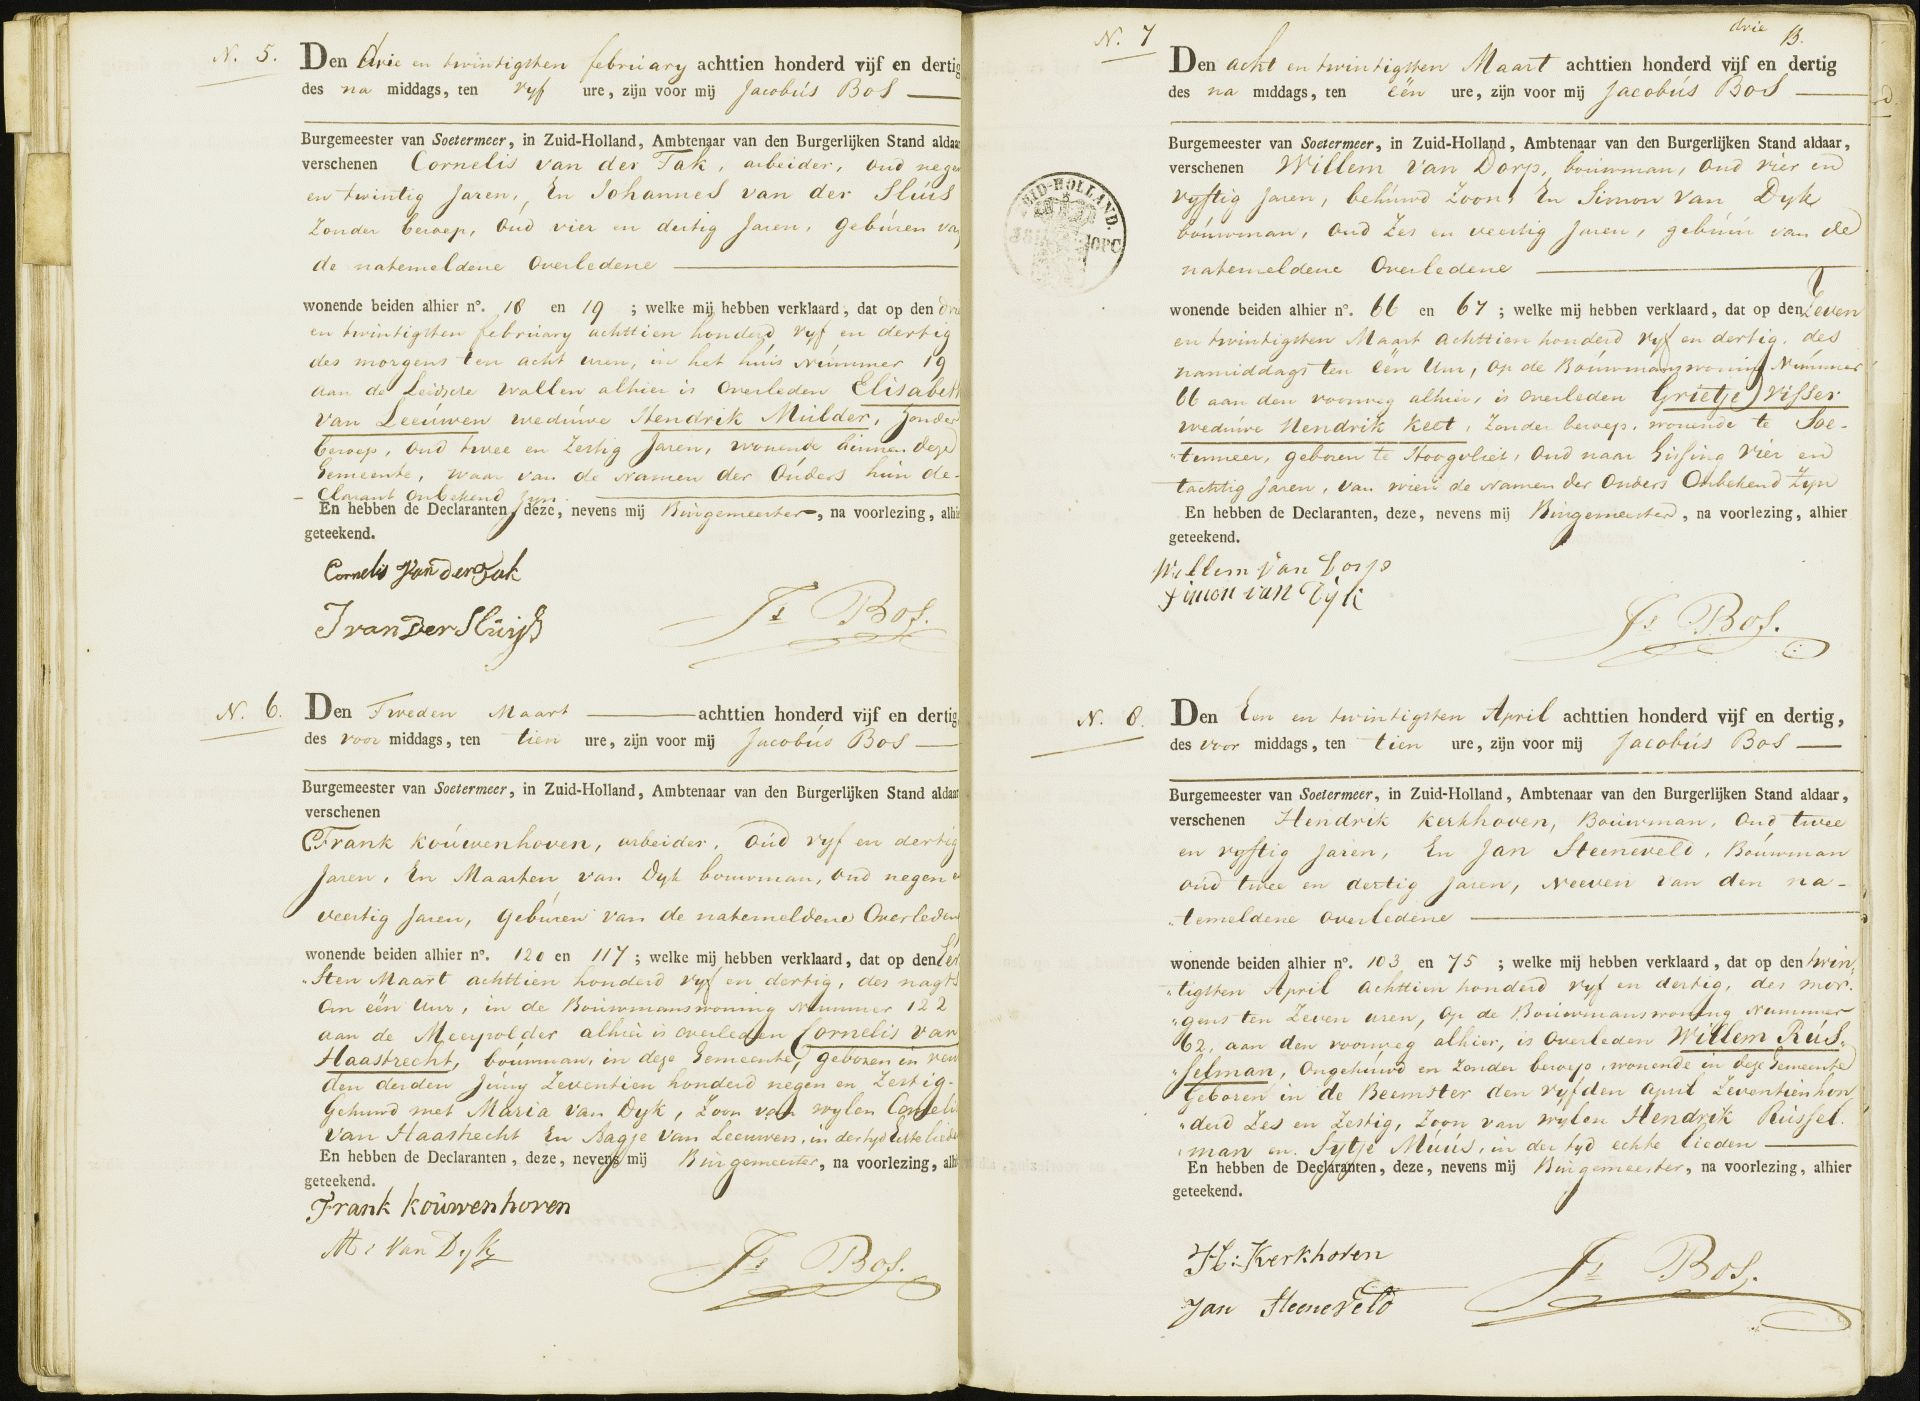 N. 5.
Den drie en twintigsten february achttien honderd vijf en dertig
des na middags, ten vyf ure, zijn voor mij Jacobús Bos
Burgemeester van Soetermeer, in Zuid-Holland, Ambtenaar van den Burgerlijken Stand aldaar
verschenen Cornelis van der Tak, arbeider, oud negen
en twintig Jaren, En Johannes van der Sluis
Zonder beroep, Oud vier en dertig Jaren, Gebúren van
de natemeldene Overledene
wonende beiden alhier nº. 18 en 19 ; welke mij hebben verklaard, dat op den drie
en twintigsten february achttien honderd vyf en dertig
des morgens ten acht uren, in het húis Númmer 19
aan de Leidsche wallen alhier is Overleden Elisabeth
van Leeúwen wedúwe Hendrik Múlder, Zonder
beroep, Oud twee en Zestig Jaren, wonende binnen deze
Gemeente, waar van de Namen der Oúders hún de-
clarant Onbekend Zyn.
En hebben de Declaranten, deze, nevens mij Búrgemeester, na voorlezing, alhier
geteekend.
Cornelis Van der Tak
J van Der Slúijs
Js Bos.
N. 6.
Den Tweden Maart achttien honderd vijf en dertig
des voor middags, ten tien ure, zijn voor mij Jacobús Bos
Burgemeester van Soetermeer, in Zuid-Holland, Ambtenaar van den Burgerlijken Stand aldaar
verschenen
Frank koúwenhoven, arbeider, Oúd vyf en dertig
Jaren, En Maarten van Dyk bouwman, Oud negen en
veertig Jaren, Gebúren van de natemeldene Overledene
wonende beiden alhier nº. 120 en 117 ; welke mij hebben verklaard, dat op den Eer
"sten Maart achttien honderd vyf en dertig, des nagts
Om eën Uur, in de Boúwmanswoning Nummer 122
aan de Meerpolder alhier is overleden Cornelis van
Haastrecht, boúwman, in deze Gemeente, geboren in
den derden Juny Zeventien honderd negen en Zestig.
Gehuwd met Maria van Dyk, Zoon van wylen Cornelis
van Haastrecht En Aagje van Leeuwen, in der tyd Echte lieden
En hebben de Declaranten, deze, nevens mij Búrgemeester, na voorlezing, alhier
geteekend.
Frank koúwenhoven
M: Van Dyk
Js Bos.
drie
13.
N. 7
Den acht en twintigsten Maart achttien honderd vijf en dertig
des na middags, ten eën ure, zijn voor mij Jacobús Bos
Burgemeester van Soetermeer, in Zuid-Holland, Ambtenaar van den Burgerlijken Stand aldaar,
verschenen Willem van Dorp, boúwman, Oud vier en
vyftig Jaren, behúwd Zoon, En Simon van Dyk
boúwman, Oud Zes en veertig Jaren, gebúúr van de
natemeldene Overledene
ZUID-HOLLAND.
wonende beiden alhier nº. 66 en 67 ; welke mij hebben verklaard, dat op den Zeven
en twintigsten Maart achttien honderd vyf en dertig, des
namiddags ten eën Uur, op de Boúwmanswoning Númmer
66 aan den voorweg alhier, is overleden Grietje Visser
wedúwe Hendrik Keet, Zonder beroep, wonende te Soe-
"termeer, geboren te Hoogvliet, Oud naar Gissing vier en
tachtig Jaren, van wien de Namen der Ouders Onbekend Zyn
En hebben de Declaranten, deze, nevens mij Búrgemeester, na voorlezing, alhier
geteekend.
Willem van Dorp
Simon van Dyk
Js Bos.
N. 8.
Den Een en twintigsten April achttien honderd vijf en dertig,
des voor middags, ten tien ure, zijn voor mij Jacobús Bos
Burgemeester van Soetermeer, in Zuid-Holland, Ambtenaar van den Burgerlijken Stand aldaar,
verschenen Hendrik Kerkhoven, Boúwman, Oud twee
en vyftig Jaren, En Jan Steeneveld, Boúwman
Oúd twee en dertig Jaren, Neeven van den na-
"temeldene overledene
wonende beiden alhier nº. 103 en 75 ; welke mij hebben verklaard, dat op den twin
"tigsten April achttien honderd vyf en dertig, des mor-
"gens ten Zeven uren, op de Boúwmanswoning Nummer
62, aan den voorweg alhier, is Overleden Willem Rús-
"selman, Ongehúwd en Zonder beroep, wonende in deze Gemeente
Geboren in de Beemster den vyfden april Zeventienhon
"derd Zes en Zestig, Zoon van wylen Hendrik Rússel-
"man en Sytje Múús, in der tyd echte lieden
En hebben de Declaranten, deze, nevens mij Búrgemeester, na voorlezing, alhier
geteekend.
H: Kerkhoven
Jan Steeneveld
Js Bos.